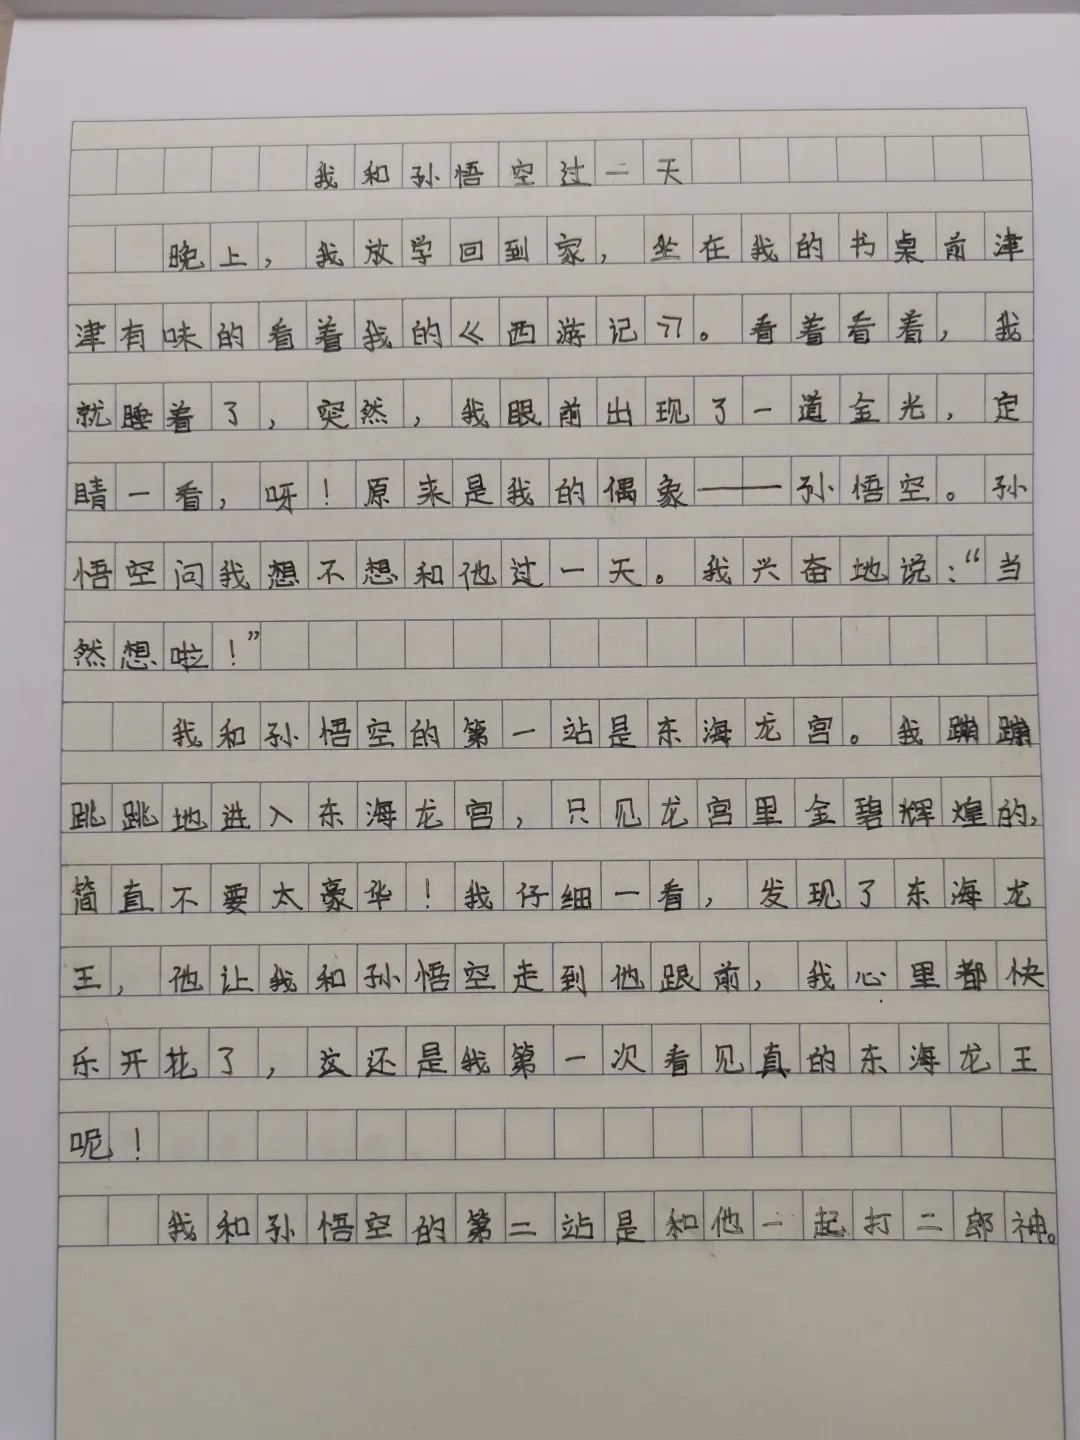 我和孙悟空过一天
晚上，我放学回到家，坐在我的书桌前津
津有味的看着我的《西游记》。看着看着，我
就睡着了，突然，我眼前出现了一道金光，定
睛一看，呀！原来是我的偶象——孙悟空。孙
悟空问我想不想和他过一天。我兴奋地说：“当
然想啦！”
我和孙悟空的第一站是东海龙宫。我蹦蹦
跳跳地进入东海龙宫，只见龙宫里金碧辉煌的，
简直不要太豪华！我仔细一看，发现了东海龙
王，他让我和孙悟空走到他跟前，我心里都快
乐开花了，这还是我第一次看见真的东海龙王
呢！
我和孙悟空的第二站是和他一起打二郎神。